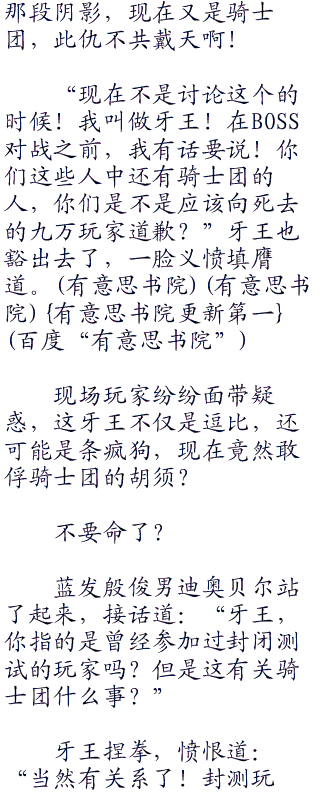 那段阴影，现在又是骑士
团，此仇不共戴天啊！
“现在不是讨论这个的
时候！我叫做牙王！在BOSS
对战之前，我有话要说！你
们这些人中还有骑士团的
人，你们是不是应该向死去
的九万玩家道歉？”牙王也
豁出去了，一脸义愤填膺
道。(有意思书院)(有意思书
院){有意思书院更新第一}
(百度“有意思书院”)
现场玩家纷纷面带疑
惑，这牙王不仅是逗比，还
可能是条疯狗，现在竟然敢
俘骑士团的胡须？
不要命了？
蓝发殷俊男迪奥贝尔站
了起来，接话道：“牙王，
你指的是曾经参加过封闭测
试的玩家吗？但是这有关骑
士团什么事？”
牙王捏拳，愤恨道：
“当然有关系了！封测玩